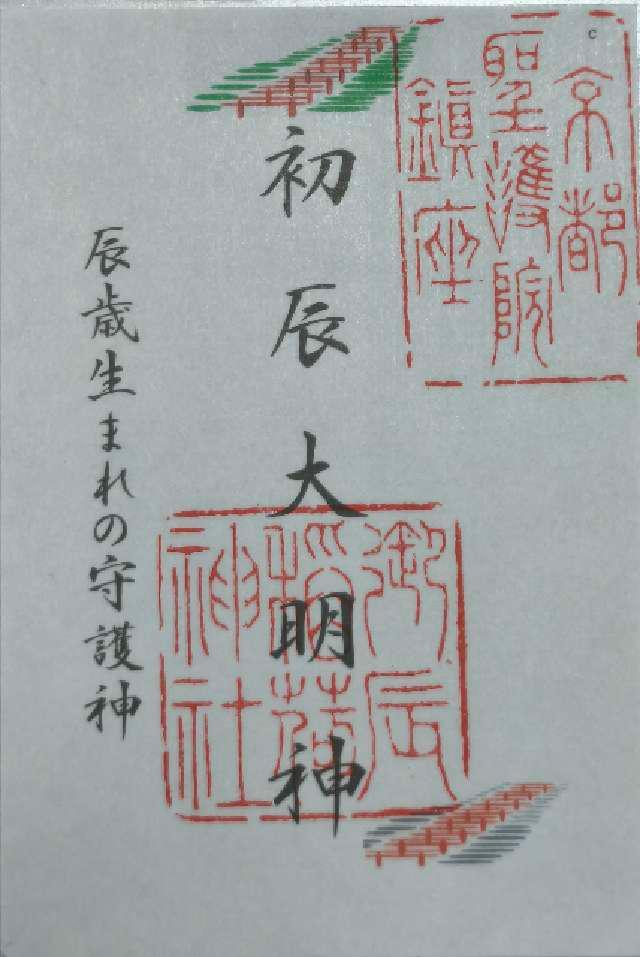 京都
聖護院
鎮座
初辰大明神
御辰
稲荷
神社
辰歳生まれの守護神
c